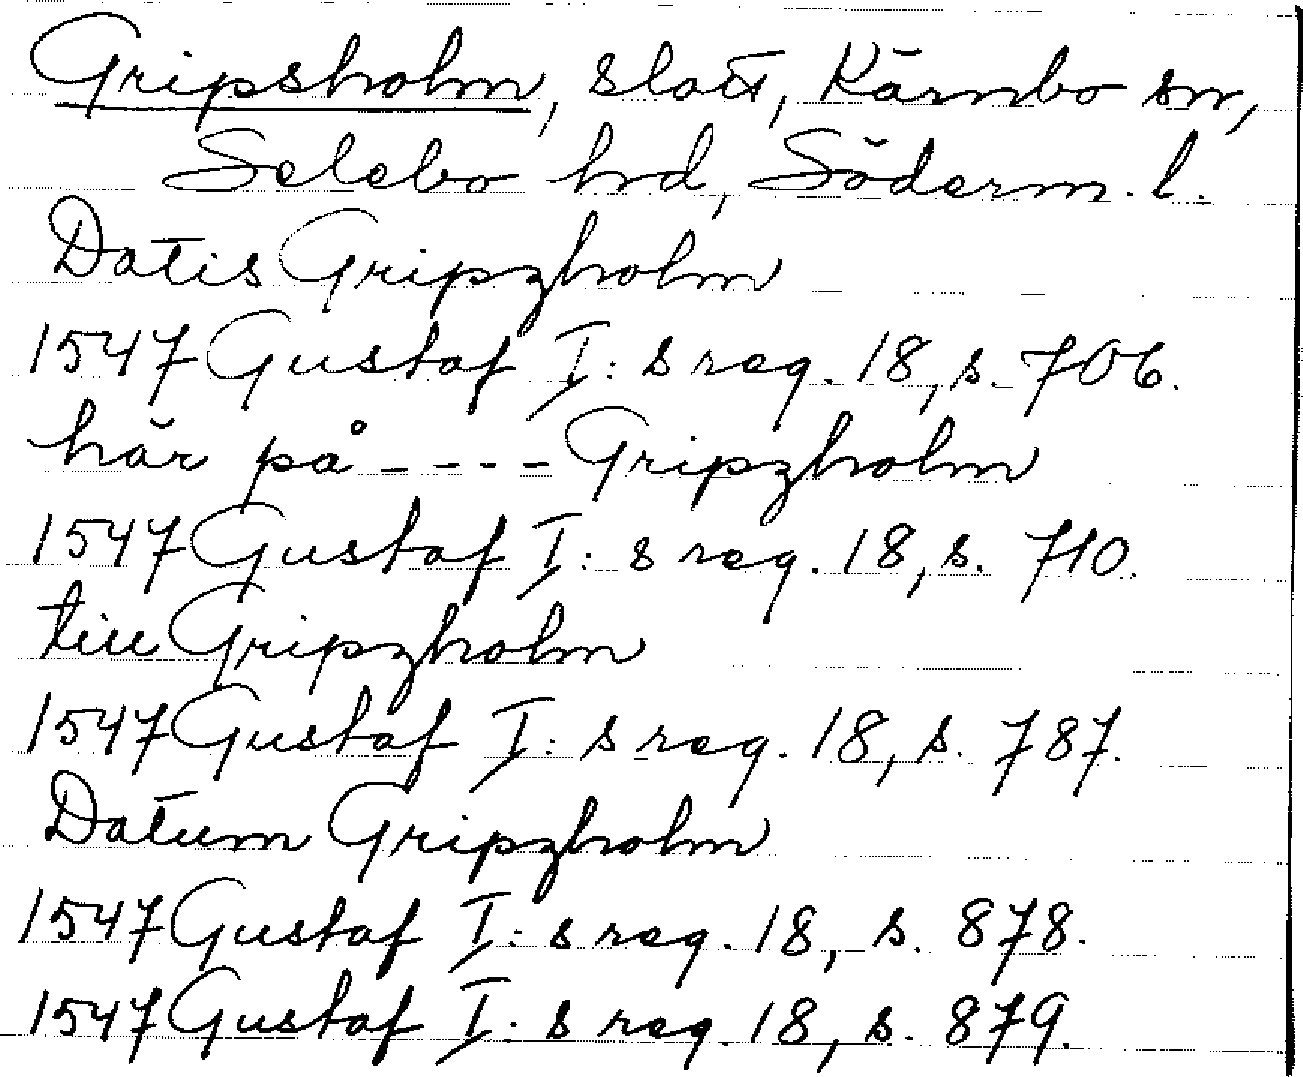 Gripsholm, slott, Kärnbo sn,
Selebo hd, Söderm. l.
Datis Gripzholm
1547 Gustaf I:s reg. 18, s. 706.
här på ---- Gripzholm
1547 Gustaf I:s reg. 18, s. 710.
till Gripzholm
1547 Gustaf I:s reg. 18, s. 787.
Datum Gripzholm
1547 Gustaf I:s reg. 18, s. 878.
1547 Gustaf I:s reg. 18, s. 879.